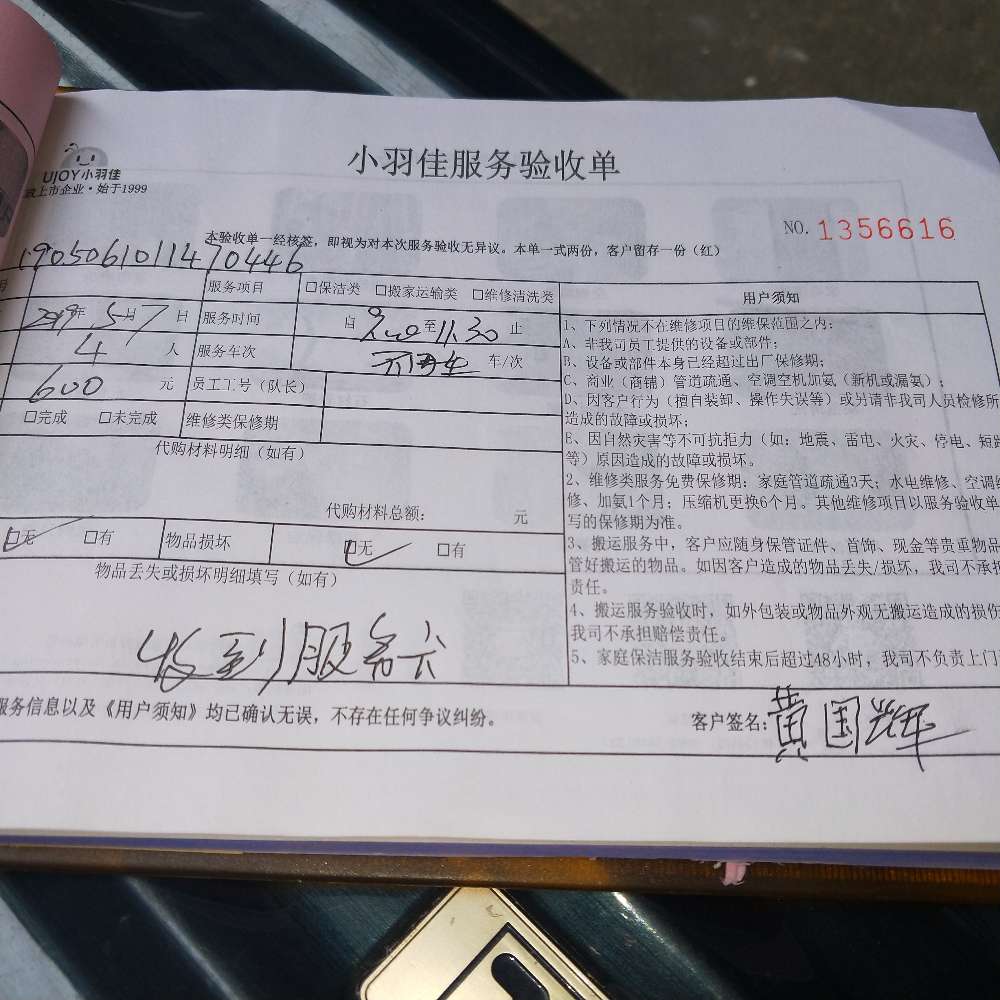 小羽佳服务验收单
UJOY小羽佳
上市企业·始于1999
NO. 1356616
本验收单一经核签，即视为对本次服务验收无异议。本单一式两份，客户留存一份（红）
1905061011470446
号 服务项目 □保洁类 □搬家运输类 □维修清洗类
2019年 5月7日 服务时间 自 至 11.30 止
4 人 服务车次 车/次
600 元 员工工号（队长）
□完成 □未完成 维修类保修期
代购材料明细（如有）
代购材料总额： 元
□无 □有 物品损坏 □无 □有
物品丢失或损坏明细填写（如有）
收到服务
用户须知
1、下列情况不在维修项目的维保范围之内：
A、非我司员工提供的设备或部件；
B、设备或部件本身已经超过出厂保修期；
C、商业（商铺）管道疏通、空调空机加氨（新机或漏氨）；
D、因客户行为（擅自装卸、操作失误等）或另请非我司人员检修所
造成的故障或损坏；
E、因自然灾害等不可抗拒力（如：地震、雷电、火灾、停电、短路
等）原因造成的故障或损坏。
2、维修类服务免费保修期：家庭管道疏通3天；水电维修、空调维
修、加氨1个月；压缩机更换6个月。其他维修项目以服务验收单
写的保修期为准。
3、搬运服务中，客户应随身保管证件、首饰、现金等贵重物品
管好搬运的物品。如因客户造成的物品丢失/损坏，我司不承担
责任。
4、搬运服务验收时，如外包装或物品外观无搬运造成的损伤
我司不承担赔偿责任。
5、家庭保洁服务验收结束后超过48小时，我司不负责上门
服务信息以及《用户须知》均已确认无误，不存在任何争议纠纷。
客户签名：黄国辉